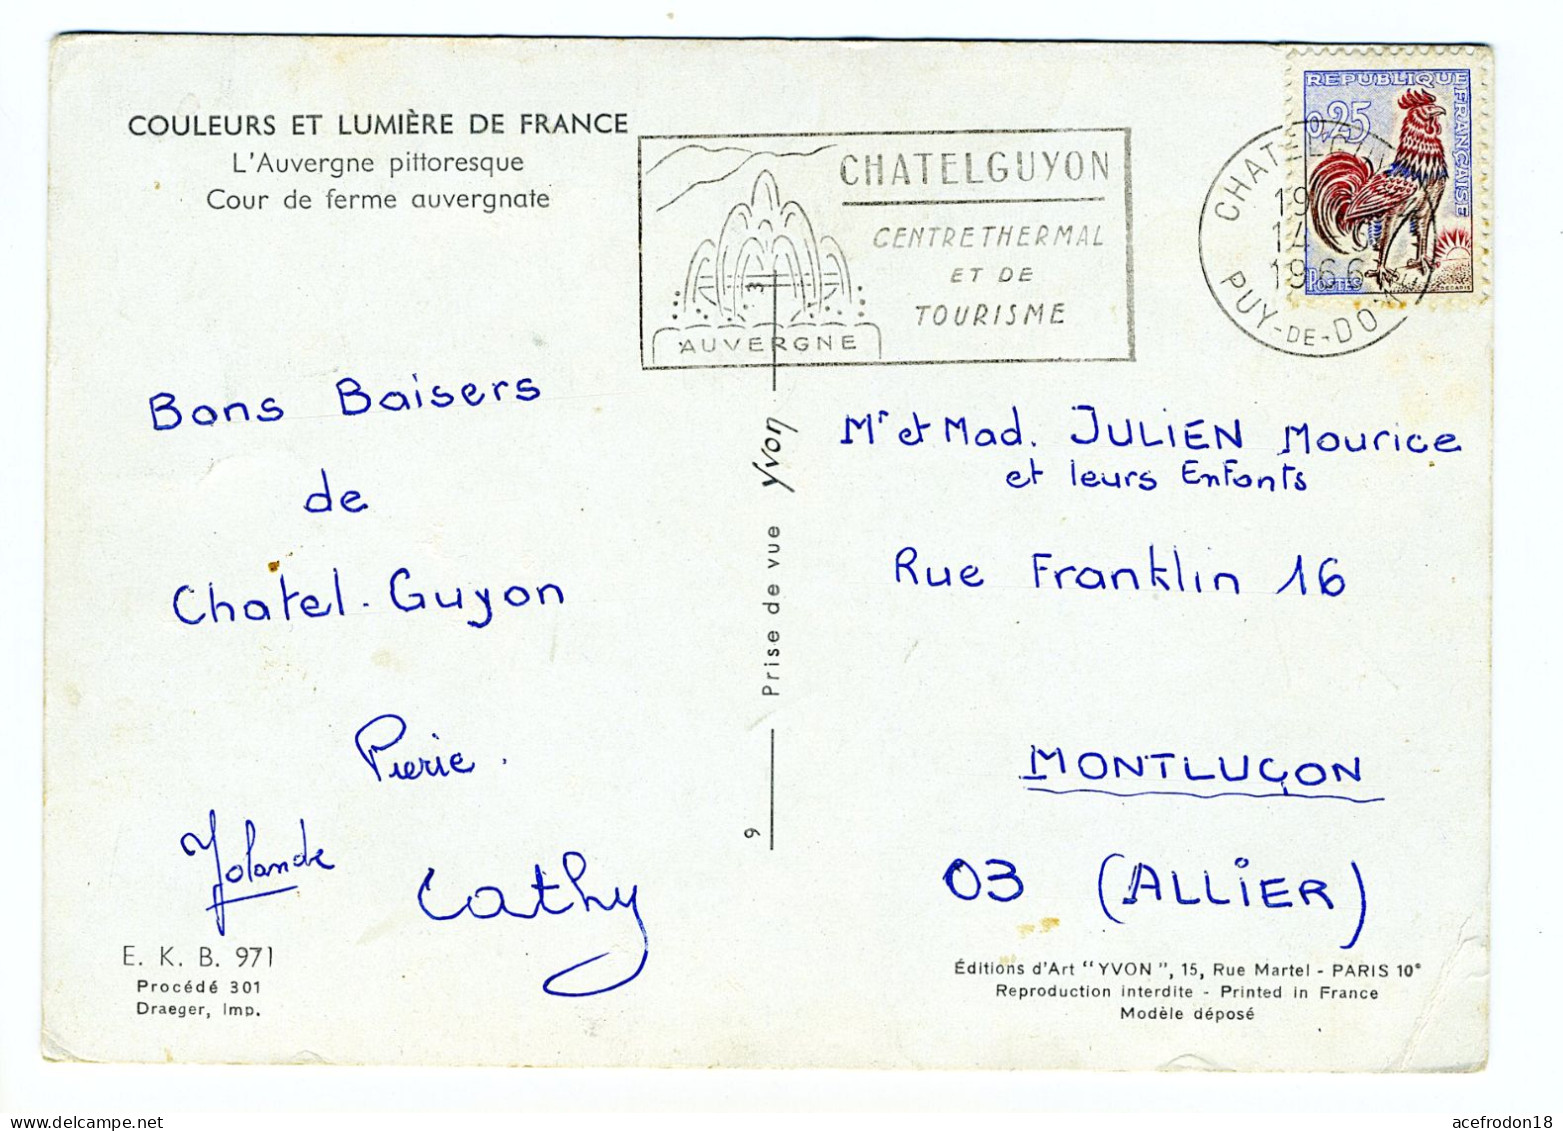 COULEURS ET LUMIÈRE DE FRANCE
L'Auvergne pittoresque
Cour de ferme auvergnate
CHATELGUYON
CENTRE THERMAL
ET DE
TOURISME
AUVERGNE
3
REPUBLIQUE FRANÇAISE
0,25
POSTES
DECARIS
19
14
1966
PUY-DE-DOME
Bons Baisers
de
Chatel-Guyon
Pierre.
Yolande
Cathy
E. K. B. 971
Procédé 301
Draeger, Imp.
Prise de vue Yvon
9
Mr et Mad. JULIEN Mourice
et leurs Enfonts
Rue Franklin 16
MONTLUÇON
03 (ALLiER)
Éditions d'Art "YVON", 15, Rue Martel - PARIS 10e
Reproduction interdite - Printed in France
Modèle déposé
acefrodon18